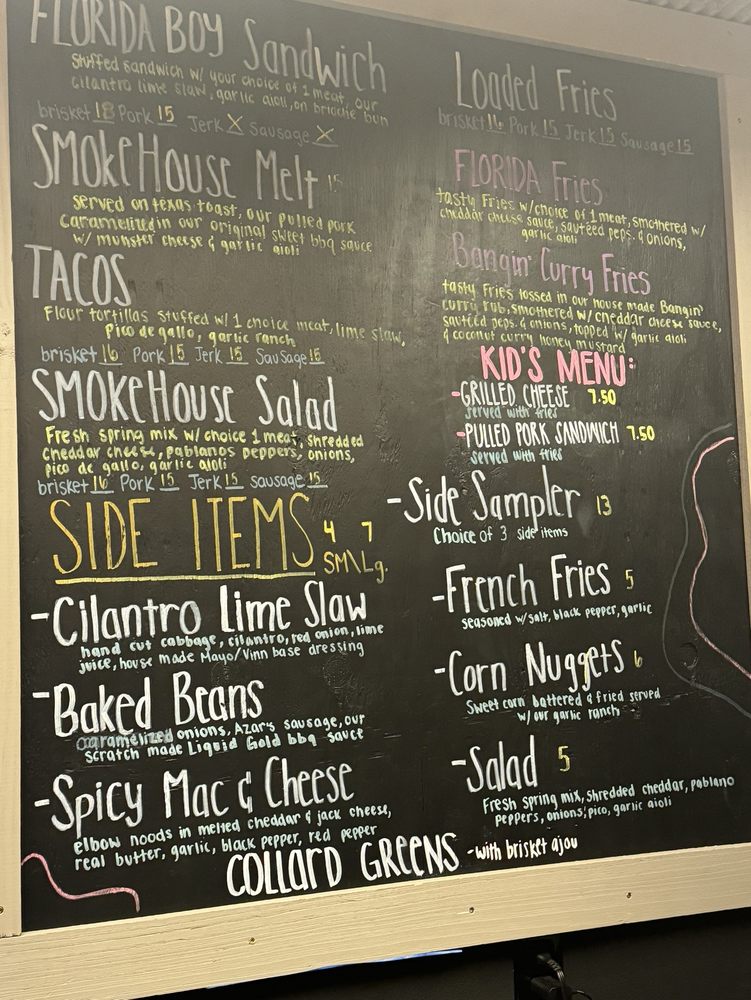 FLORIDA BOY Sandwich
Stuffed sandwich w/ your choice of 1 meat, our
cilantro lime slaw, garlic aioli, on brioche bun
brisket 18 Pork 15 Jerk X Sausage X
SMOKEHOUSE Melt 15
served on texas toast, our pulled pork
caramelized in our original sweet bbq sauce
w/ munster cheese & garlic aioli
TACOS
Flour tortillas stuffed w/ 1 choice meat, lime slaw,
Pico de gallo, garlic ranch
brisket 16 Pork 15 Jerk 15 Sausage 15
SMOKEHOUSE Salad
Fresh spring mix w/ choice 1 meat, shredded
cheddar cheese, pablanos peppers, onions,
pico de gallo, garlic aioli
brisket 16 Pork 15 Jerk 15 Sausage 15
SIDE ITEMS 4 7
SM\Lg.
-Cilantro Lime Slaw
hand cut cabbage, cilantro, red onion, lime
juice, house made Mayo/Vinn base dressing
-Baked Beans
caramelized onions, Azar's sausage, our
scratch made Liquid Gold bbq sauce
-Spicy Mac & Cheese
elbow noods in melted cheddar & jack cheese,
real butter, garlic, black pepper, red pepper
COLLARD GREENS -with brisket ajou
Loaded Fries
brisket 16 Pork 15 Jerk 15 Sausage 15
FLORIDA Fries
tasty Fries w/choice of 1 meat, smothered w/
cheddar cheese sauce, sautéed peps. & onions,
garlic aioli
Bangin' Curry Fries
tasty Fries tossed in our house made Bangin'
curry rub, smothered w/ cheddar cheese sauce,
sautéed peps. & onions, topped w/ garlic aioli
& coconut curry honey mustard
KID'S MENU:
-GRILLED CHEESE 7.50
served with fries
-PULLED PORK SANDWICH 7.50
served with fries
-Side Sampler 13
Choice of 3 side items
-French Fries 5
seasoned w/salt, black pepper, garlic
-Corn Nuggets 6
Sweet corn battered & fried served
w/ our garlic ranch
-Salad 5
Fresh spring mix, shredded cheddar, pablano
peppers, onions, pico, garlic aioli